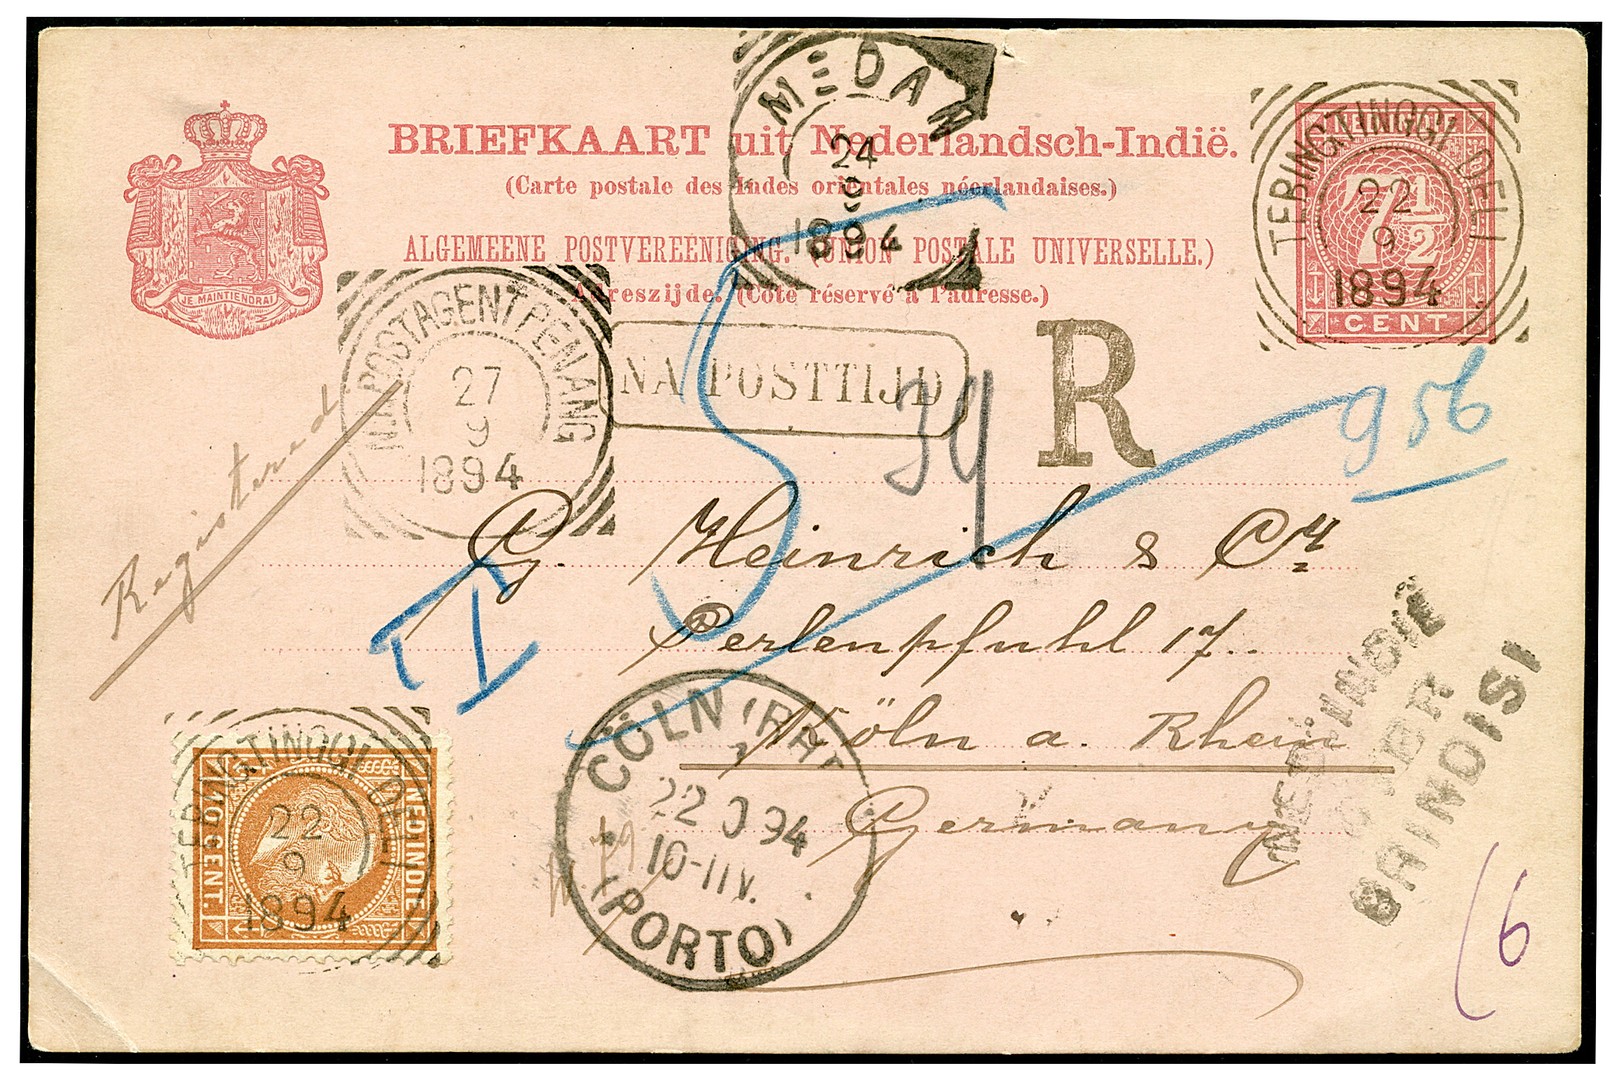 MEDAN
24
9
1894
BRIEFKAART uit Nederlandsch-Indië.
(Carte postale des Indes orientales néerlandaises.)
ALGEMEENE POSTVEREENIGING. (UNION POSTALE UNIVERSELLE.)
Adreszijde. (Côté réservé à l'adresse.)
JE MAINTIENDRAI
NED-INDIE
7 1/2
CENT
TEBINGTINGGI DELI
22
9
1894
N.I. POSTAGENT PENANG
27
9
1894
NA POSTTIJD
R
39
956
Registered
G. Heinrich & Cº
Perlenpfuhl 17.
Köln a. Rhein
Germany
NED. INDIË
OVER
BRINDISI
TEBINGTINGGI DELI
22
9
1894
NED INDIE
10 CENT.
CÖLN (RH
22 9 94
10-11V.
(PORTO)
6